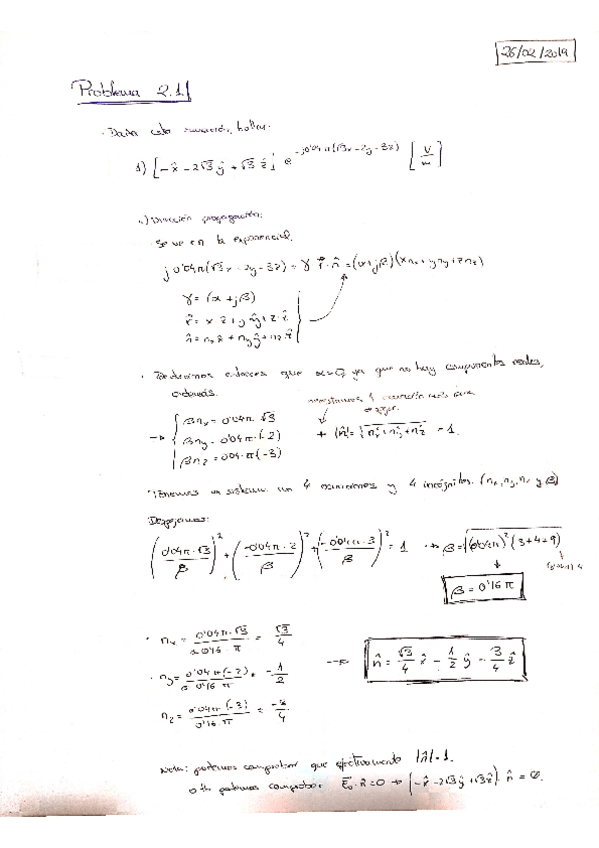 26/02/2019
Problema 2.1
· Dada esta ecuación, hallar:
1) [-x̂ - 2√3 ŷ + √3 ẑ] e^{-j0'04π(√3x-2y-3z)} [V/m]
a) Dirección propagación:
Se ve en la exponencial.
j0'04π(√3x-2y-3z) = γ r⃗·n̂ = (α+jβ)(xnx+yny+znz)
γ = (α+jβ)
n̂ = nx x̂ + ny ŷ + nz ẑ
· Deducimos entonces que α=0, ya que no hay componentes reales,
además.
necesitamos 1 ecuación más
→ { βnx = 0'04π·√3
βny = 0'04π·(-2)
βnz = 0'04·π(-3)
+ |n̂| = √(nx²+ny²+nz²) = 1.
Tenemos un sistema con 4 ecuaciones y 4 incógnitas. (nx, ny, nz y β)
Despejamos:
(0'04π·√3/β)² + (-0'04π·2/β)² + (-0'04π·3/β)² = 1 → β = √((0'04π)²(3+4+9))
β = 0'16π
· nx = 0'04π·√3 / 0'16·π = √3/4
· ny = 0'04π(-2) / 0'16π = -1/2
nz = 0'04π(-3) / 0'16·π = -3/4
→ n̂ = √3/4 x̂ - 1/2 ŷ - 3/4 ẑ
Nota: podemos comprobar que efectivamente |n̂|=1.
podemos comprobar: E⃗₀·n̂=0 → [-x̂-2√3ŷ+√3ẑ]·n̂ = 0.